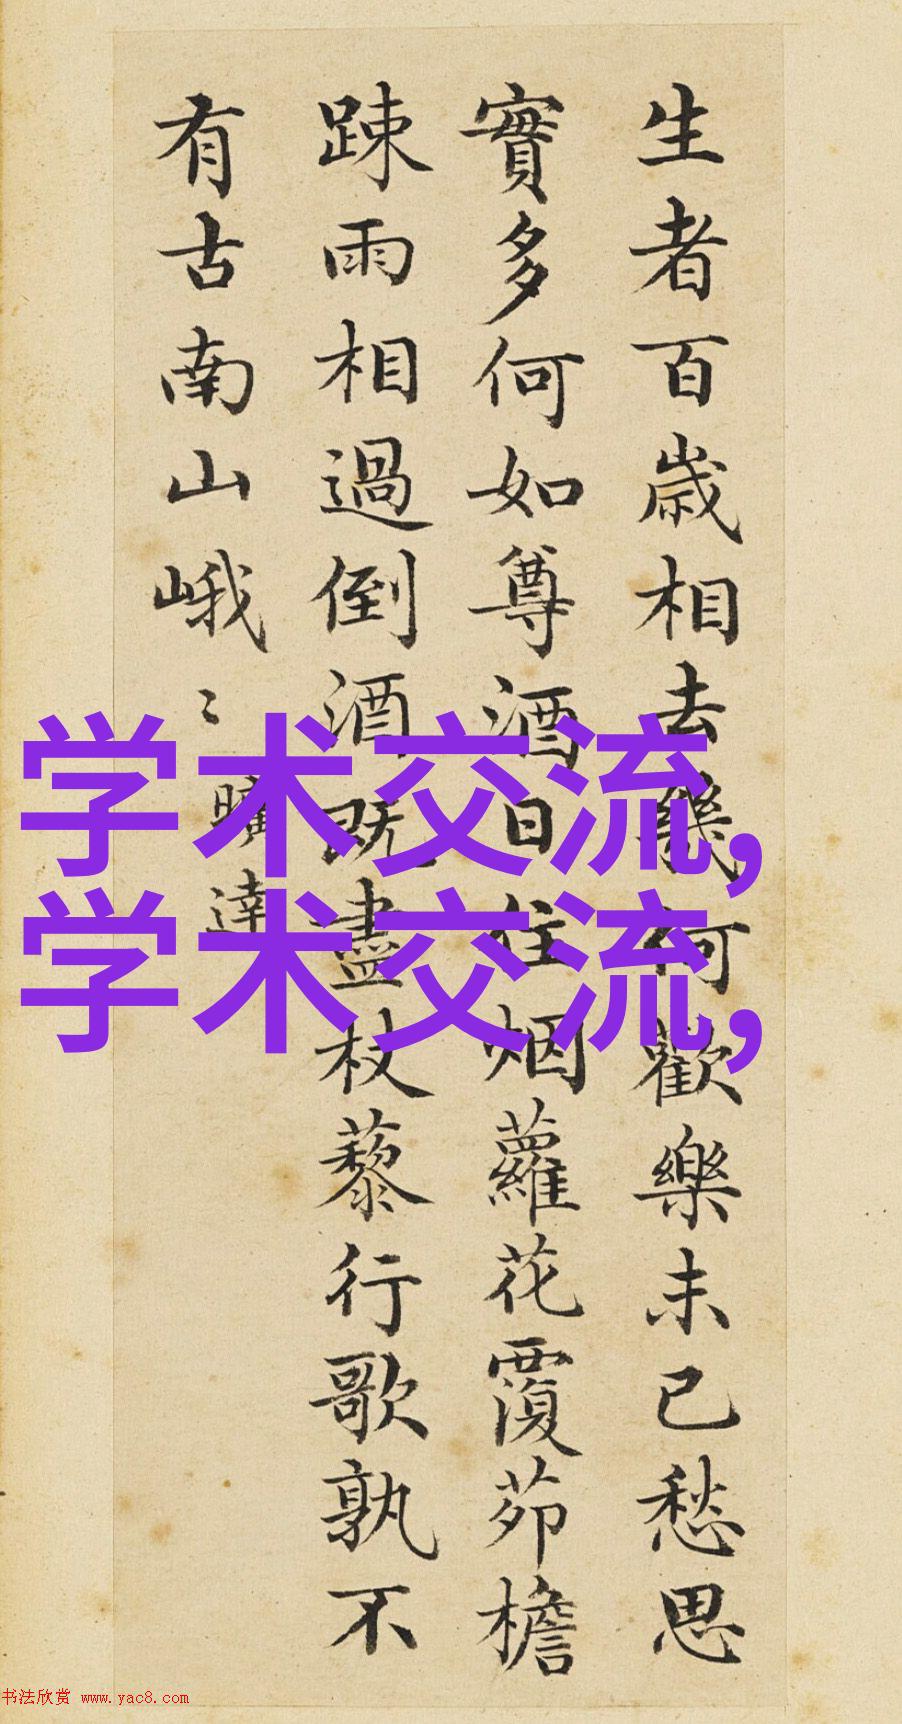 生者百歳相去幾何歡樂未已愁思
實多何如尊酒日往烟蘿花覆茆檐
踈雨相過倒酒既盡杖藜行歌孰不
有古南山峨〻
曠達
学术交流,
学术交流,
书法欣赏 www.yac8.com